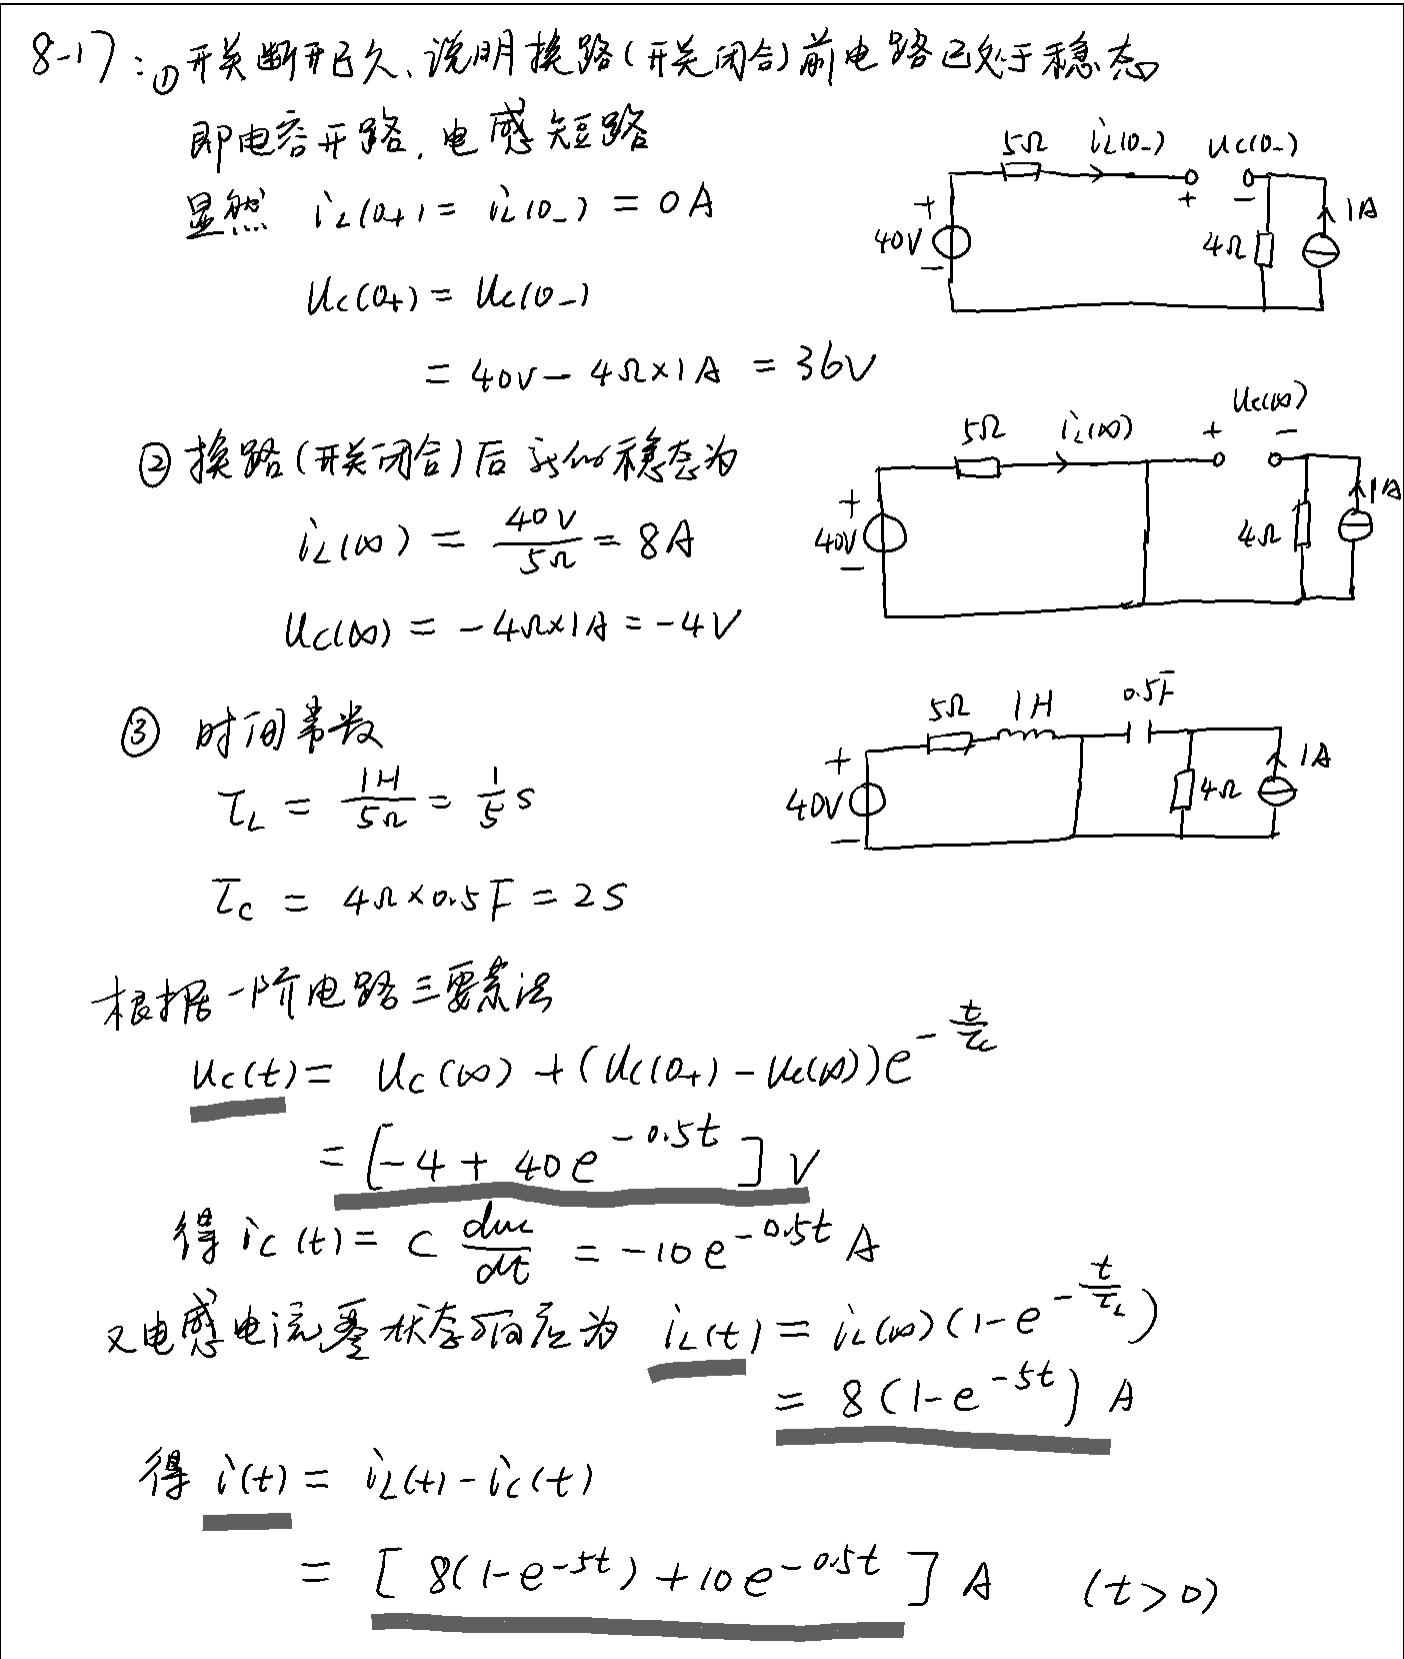 8-17:①开关断开已久、说明换路(开关闭合)前电路已处于稳态
即电容开路,电感短路
显然 iL(0+)=iL(0-)=0A
uc(0+)=uc(0-)
=40V-4Ω×1A=36V
5Ω iL(0-) uc(0-)
+ -
+ 40V -
4Ω
1A
②换路(开关闭合)后新的稳态为
iL(∞)=40V/5Ω=8A
uc(∞)=-4Ω×1A=-4V
5Ω iL(∞) + uc(∞) -
+ 40V -
4Ω
1A
③ 时间常数
τL=1H/5Ω=1/5 s
τc=4Ω×0.5F=2S
5Ω 1H 0.5F
+ 40V -
4Ω
1A
根据一阶电路三要素法
uc(t)=uc(∞)+(uc(0+)-uc(∞))e^(-t/τc)
=[-4+40e^(-0.5t)]V
得 ic(t)=C duc/dt=-10e^(-0.5t)A
又电感电流零状态响应为 iL(t)=iL(∞)(1-e^(-t/τL))
=8(1-e^(-5t))A
得 i(t)=iL(t)-ic(t)
=[8(1-e^(-5t))+10e^(-0.5t)]A (t>0)